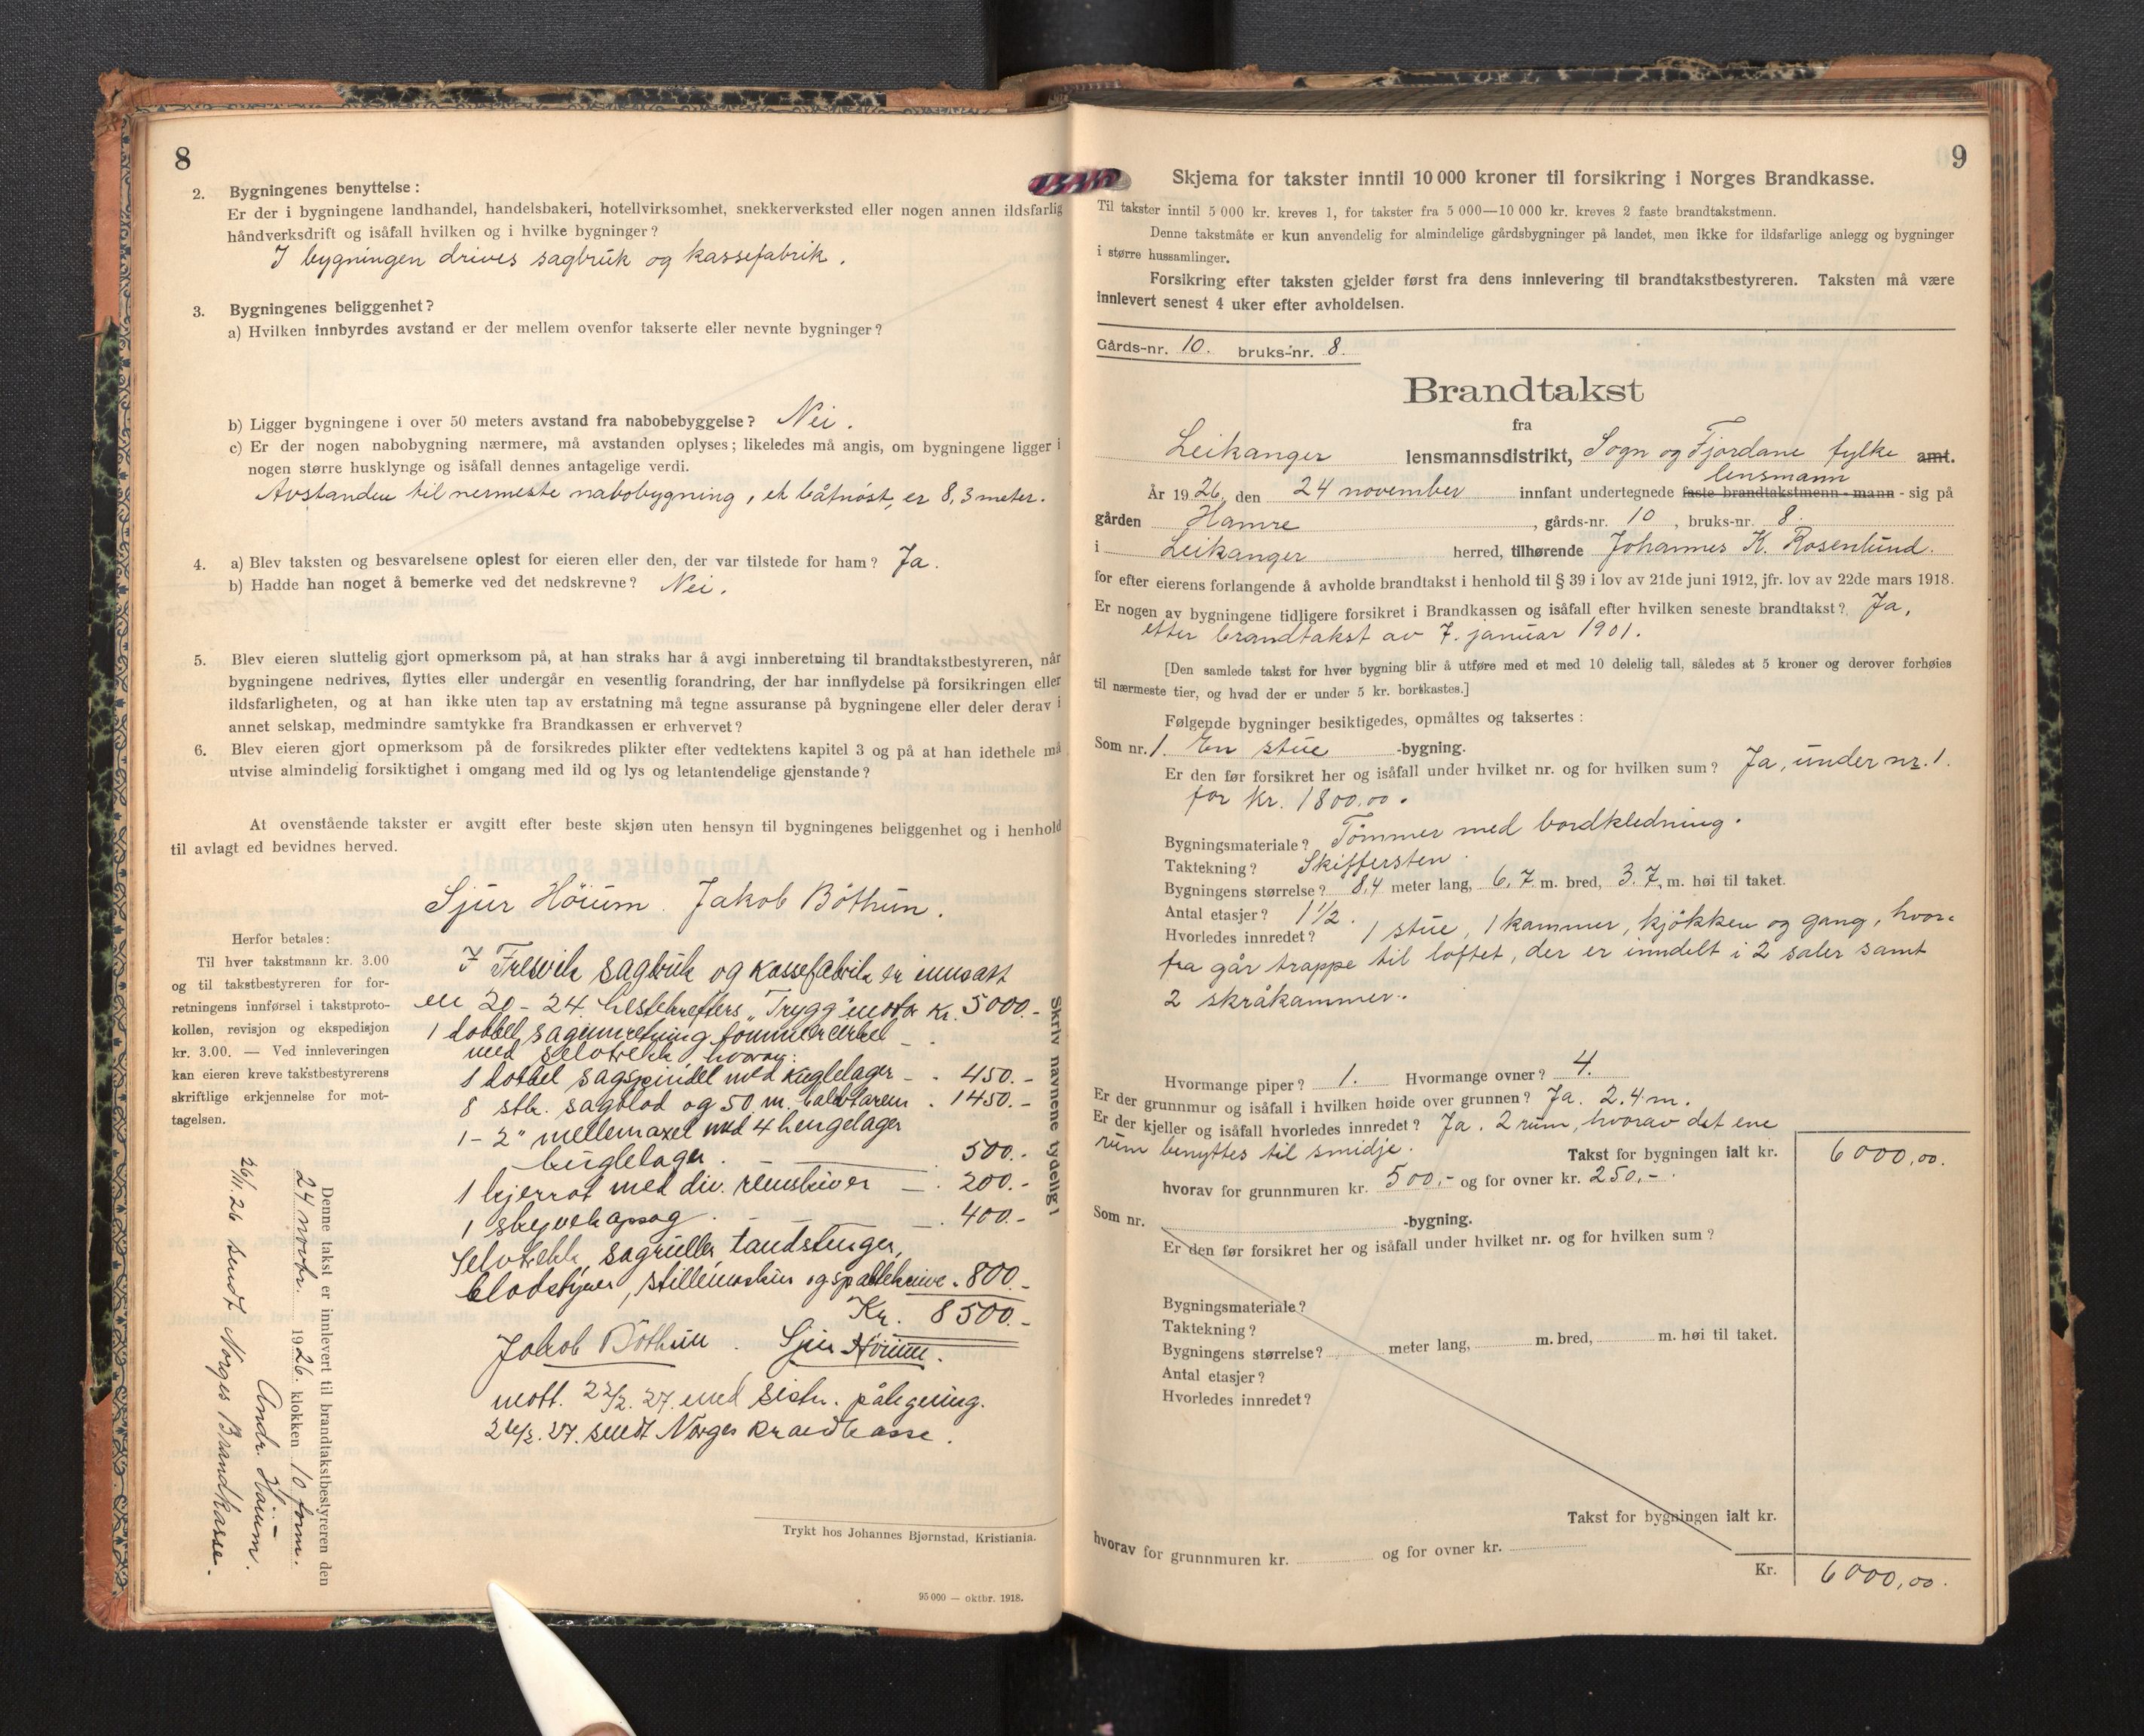 8
2. Bygningenes benyttelse :
Er der i bygningene landhandel, handelsbakeri, hotellvirksomhet, snekkerverksted eller nogen annen ildsfarlig
håndverksdrift og isåfall hvilken og i hvilke bygninger ?
I bygningen drives sagbruk og kassefabrik .
3. Bygningenes beliggenhet ?
a) Hvilken innbyrdes avstand er der mellem ovenfor takserte eller nevnte bygninger ?
b) Ligger bygningene i over 50 meters avstand fra nabobebyggelse ? Nei .
c) Er der nogen nabobygning nærmere, må avstanden oplyses ; likeledes må angis, om bygningene ligger i
nogen større husklynge og isåfall dennes antagelige verdi.
Avstanden til nermeste nabobygning, et båtnöst, er 8,3 meter.
4. a) Blev taksten og besvarelsene oplest for eieren eller den, der var tilstede for ham ? Ja .
b) Hadde han noget å bemerke ved det nedskrevne ? Nei .
5. Blev eieren sluttelig gjort opmerksom på, at han straks har å avgi innberetning til brandtakstbestyreren, når
bygningene nedrives, flyttes eller undergår en vesentlig forandring, der har innflydelse på forsikringen eller
ildsfarligheten, og at han ikke uten tap av erstatning må tegne assuranse på bygningene eller deler derav i
annet selskap, medmindre samtykke fra Brandkassen er erhvervet ?
6. Blev eieren gjort opmerksom på de forsikredes plikter efter vedtektens kapitel 3 og på at han idethele må
utvise almindelig forsiktighet i omgang med ild og lys og letantendelige gjenstande ?
At ovenstående takster er avgitt efter beste skjøn uten hensyn til bygningenes beliggenhet og i henhold
til avlagt ed bevidnes herved.
Sjur Höium . Jakob Böthun .
Herfor betales :
Til hver takstmann kr. 3.00
og til takstbestyreren for for-
retningens innførsel i takstproto-
kollen, revisjon og ekspedisjon
kr. 3.00. — Ved innleveringen
kan eieren kreve takstbestyrerens
skriftlige erkjennelse for mot-
tagelsen.
I sagbruk og kassefabrik er innsatt
en 20-24 hestekrefters „Trygg" motor kr. 5000.-
1 dobbel saginnretning tömmercirkel
med selvtrekk hvorav:
1 dobbel sagspindel med kuglelager - . 450.-
8 stk. sagblad og 50 m. balatarem . 1450.-
1 - 2" mellemaxel med 4 hengelager
kuglelager . 500.-
1 kjerrat med div. remskiver - . 200.-
1 skyvekapsag . - . 400.-
Selvtrekk, sagruller, tandstenger,
bladstyrer, stillemaskin og spalteknive . 800.-
Kr. 8500.-
Jakob Böthun . Sjur Höium .
mott. 22/2. 27. med siste. pålegning.
24/2. 27. sendt Norges Brandkasse .
Skriv navnene tydelig !
Denne takst er innlevert til brandtakstbestyreren den
24 novbr. 1926. klokken 10 form.
Andr. Höium.
26/11.26 sendt Norges Brandkasse.
Trykt hos Johannes Bjørnstad, Kristiania.
95 000 — oktbr. 1918.
9
Skjema for takster inntil 10 000 kroner til forsikring i Norges Brandkasse.
Til takster inntil 5 000 kr. kreves 1, for takster fra 5 000—10 000 kr. kreves 2 faste brandtakstmenn.
Denne takstmåte er kun anvendelig for almindelige gårdsbygninger på landet, men ikke for ildsfarlige anlegg og bygninger
i større hussamlinger.
Forsikring efter taksten gjelder først fra dens innlevering til brandtakstbestyreren. Taksten må være
innlevert senest 4 uker efter avholdelsen.
Gårds-nr. 10. bruks-nr. 8.
Brandtakst
fra
Leikanger lensmannsdistrikt, Sogn og Fjordane fylke amt.
lensmann
År 1926, den 24 november innfant undertegnede faste brandtakstmenn - mann - sig på
gården Hamre , gårds-nr. 10 , bruks-nr. 8
i Leikanger herred, tilhørende Johannes K. Rosenlund.
for efter eierens forlangende å avholde brandtakst i henhold til § 39 i lov av 21de juni 1912, jfr. lov av 22de mars 1918.
Er nogen av bygningene tidligere forsikret i Brandkassen og isåfall efter hvilken seneste brandtakst ? Ja,
etter brandtakst av 7. januar 1901.
[Den samlede takst for hver bygning blir å utføre med et med 10 delelig tall, således at 5 kroner og derover forhøies
til nærmeste tier, og hvad der er under 5 kr. bortkastes.]
Følgende bygninger besiktigedes, opmåltes og taksertes :
Som nr. 1. En stue -bygning.
Er den før forsikret her og isåfall under hvilket nr. og for hvilken sum ? Ja, under nr. 1.
for kr. 1800,00 .
Bygningsmateriale ? Tömmer med bordkledning .
Taktekning ? Skiffersten .
Bygningens størrelse ? 8,4 meter lang, 6,7 m. bred, 3.7, m. høi til taket.
Antal etasjer ? 1 1/2 .
Hvorledes innredet ? 1 stue, 1 kammer, kjökken og gang, hvor=
fra går trappe til loftet, der er inndelt i 2 saler samt
2 skråkammer .
Hvormange piper ? 1. Hvormange ovner ? 4.
Er der grunnmur og isåfall i hvilken høide over grunnen ? Ja. 2.4 m.
Er der kjeller og isåfall hvorledes innredet ? Ja. 2 rum, hvorav det ene
rum benyttes til smidje .
Takst for bygningen ialt kr. 6000,00.
hvorav for grunnmuren kr. 500,- og for ovner kr. 250,- .
Som nr. -bygning.
Er den før forsikret her og isåfall under hvilket nr. og for hvilken sum ?
Bygningsmateriale ?
Taktekning ?
Bygningens størrelse ? meter lang, m. bred, m. høi til taket.
Antal etasjer ?
Hvorledes innredet ?
Takst for bygningen ialt kr.
hvorav for grunnmuren kr. og for ovner kr.
Kr. 6000,00.